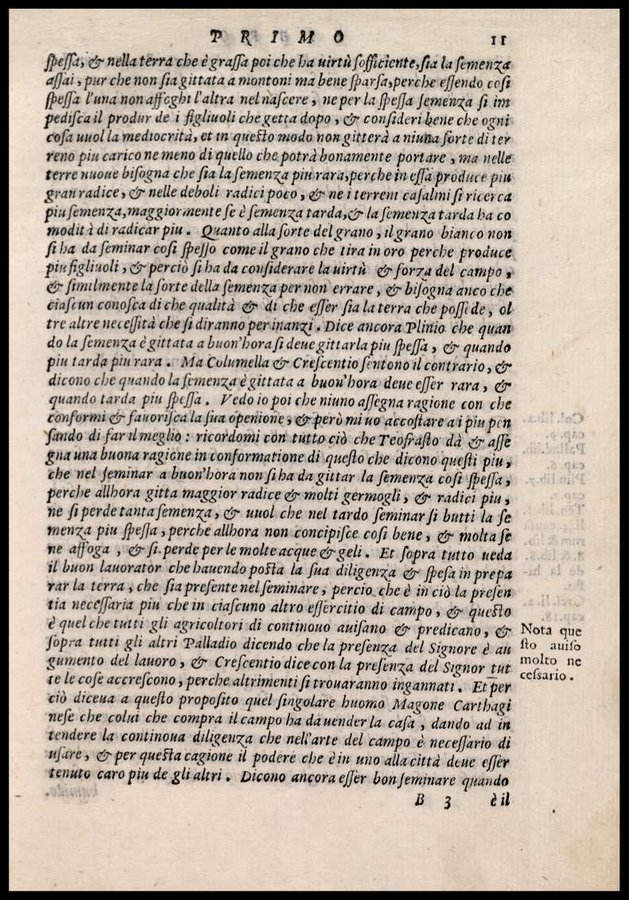 PRIMO 11
spessa, & nella terra che è grassa poi che ha uirtù sofficiente, sia la semenza
assai, pur che non sia gittata a montoni ma bene sparsa, perche essendo cosi
spessa l'una non affoghi l'altra nel nascere, ne per la spessa semenza si im
pedisca il produr de i figliuoli che getta dopo, & consideri bene che ogni
cosa uuol la mediocrità, et in questo modo non gitterà a niuna sorte di ter
reno piu carico ne meno di quello che potrà bonamente portare, ma nelle
terre nuoue bisogna che sia la semenza piu rara, perche in essa produce piu
gran radice, & nelle deboli radici poco, & ne i terreni casalini si ricerca
piu semenza, maggiormente se è semenza tarda, & la semenza tarda ha co
modità di radicar piu. Quanto alla sorte del grano, il grano bianco non
si ha da seminar cosi spesso come il grano che tira in oro perche produce
piu figliuoli, & perciò si ha da considerare la uirtù & forza del campo,
& similmente la sorte della semenza per non errare, & bisogna anco che
ciascun conosca di che qualità & di che esser sia la terra che possede, ol
tre altre necessità che si diranno per inanzi. Dice ancora Plinio che quan
do la semenza è gittata a buon'hora si deue gittarla piu spessa, & quando
piu tarda piu rara. Ma Columella & Crescentio sentono il contrario, &
dicono che quando la semenza è gittata a buon'hora deue esser rara, &
quando tarda piu spessa. Vedo io poi che niuno assegna ragione con che
conformi & fauorisca la sua openione, & però mi uo accostare a i piu pen
sando di far il meglio: ricordomi con tutto ciò che Teofrasto dà & asse
gna una buona ragione in conformatione di questo che dicono questi piu,
che nel seminar a buon'hora non si ha da gittar la semenza cosi spessa,
perche allhora gitta maggior radice & molti germogli, & radici piu,
ne si perde tanta semenza, & uuol che nel tardo seminar si butti la se
menza piu spessa, perche allhora non concipisce cosi bene, & molta se
ne affoga, & si perde per le molte acque & geli. Et sopra tutto ueda
il buon lauorator che hauendo posta la sua diligenza & spesa in prepa
rar la terra, che sia presente nel seminare, percio che è in ciò la presen
tia necessaria piu che in ciascuno altro essercitio di campo, & questo
è quel che tutti gli agricoltori di continouo auisano & predicano, &
sopra tutti gli altri Palladio dicendo che la presenza del Signore è au
gumento del lauoro, & Crescentio dice con la presenza del Signor tut
te le cose accrescono, perche altrimenti si trouaranno ingannati. Et per
ciò diceua a questo proposito quel singolare huomo Magone Carthagi
nese che colui che compra il campo ha da uender la casa, dando ad in
tendere la continoua diligenza che nell'arte del campo è necessario di
usare, & per questa cagione il podere che è in uno alla città deue esser
tenuto caro piu de gli altri. Dicono ancora esser bon seminare quando
B 3 è il
Nota que
sto auiso
molto ne
cessario.